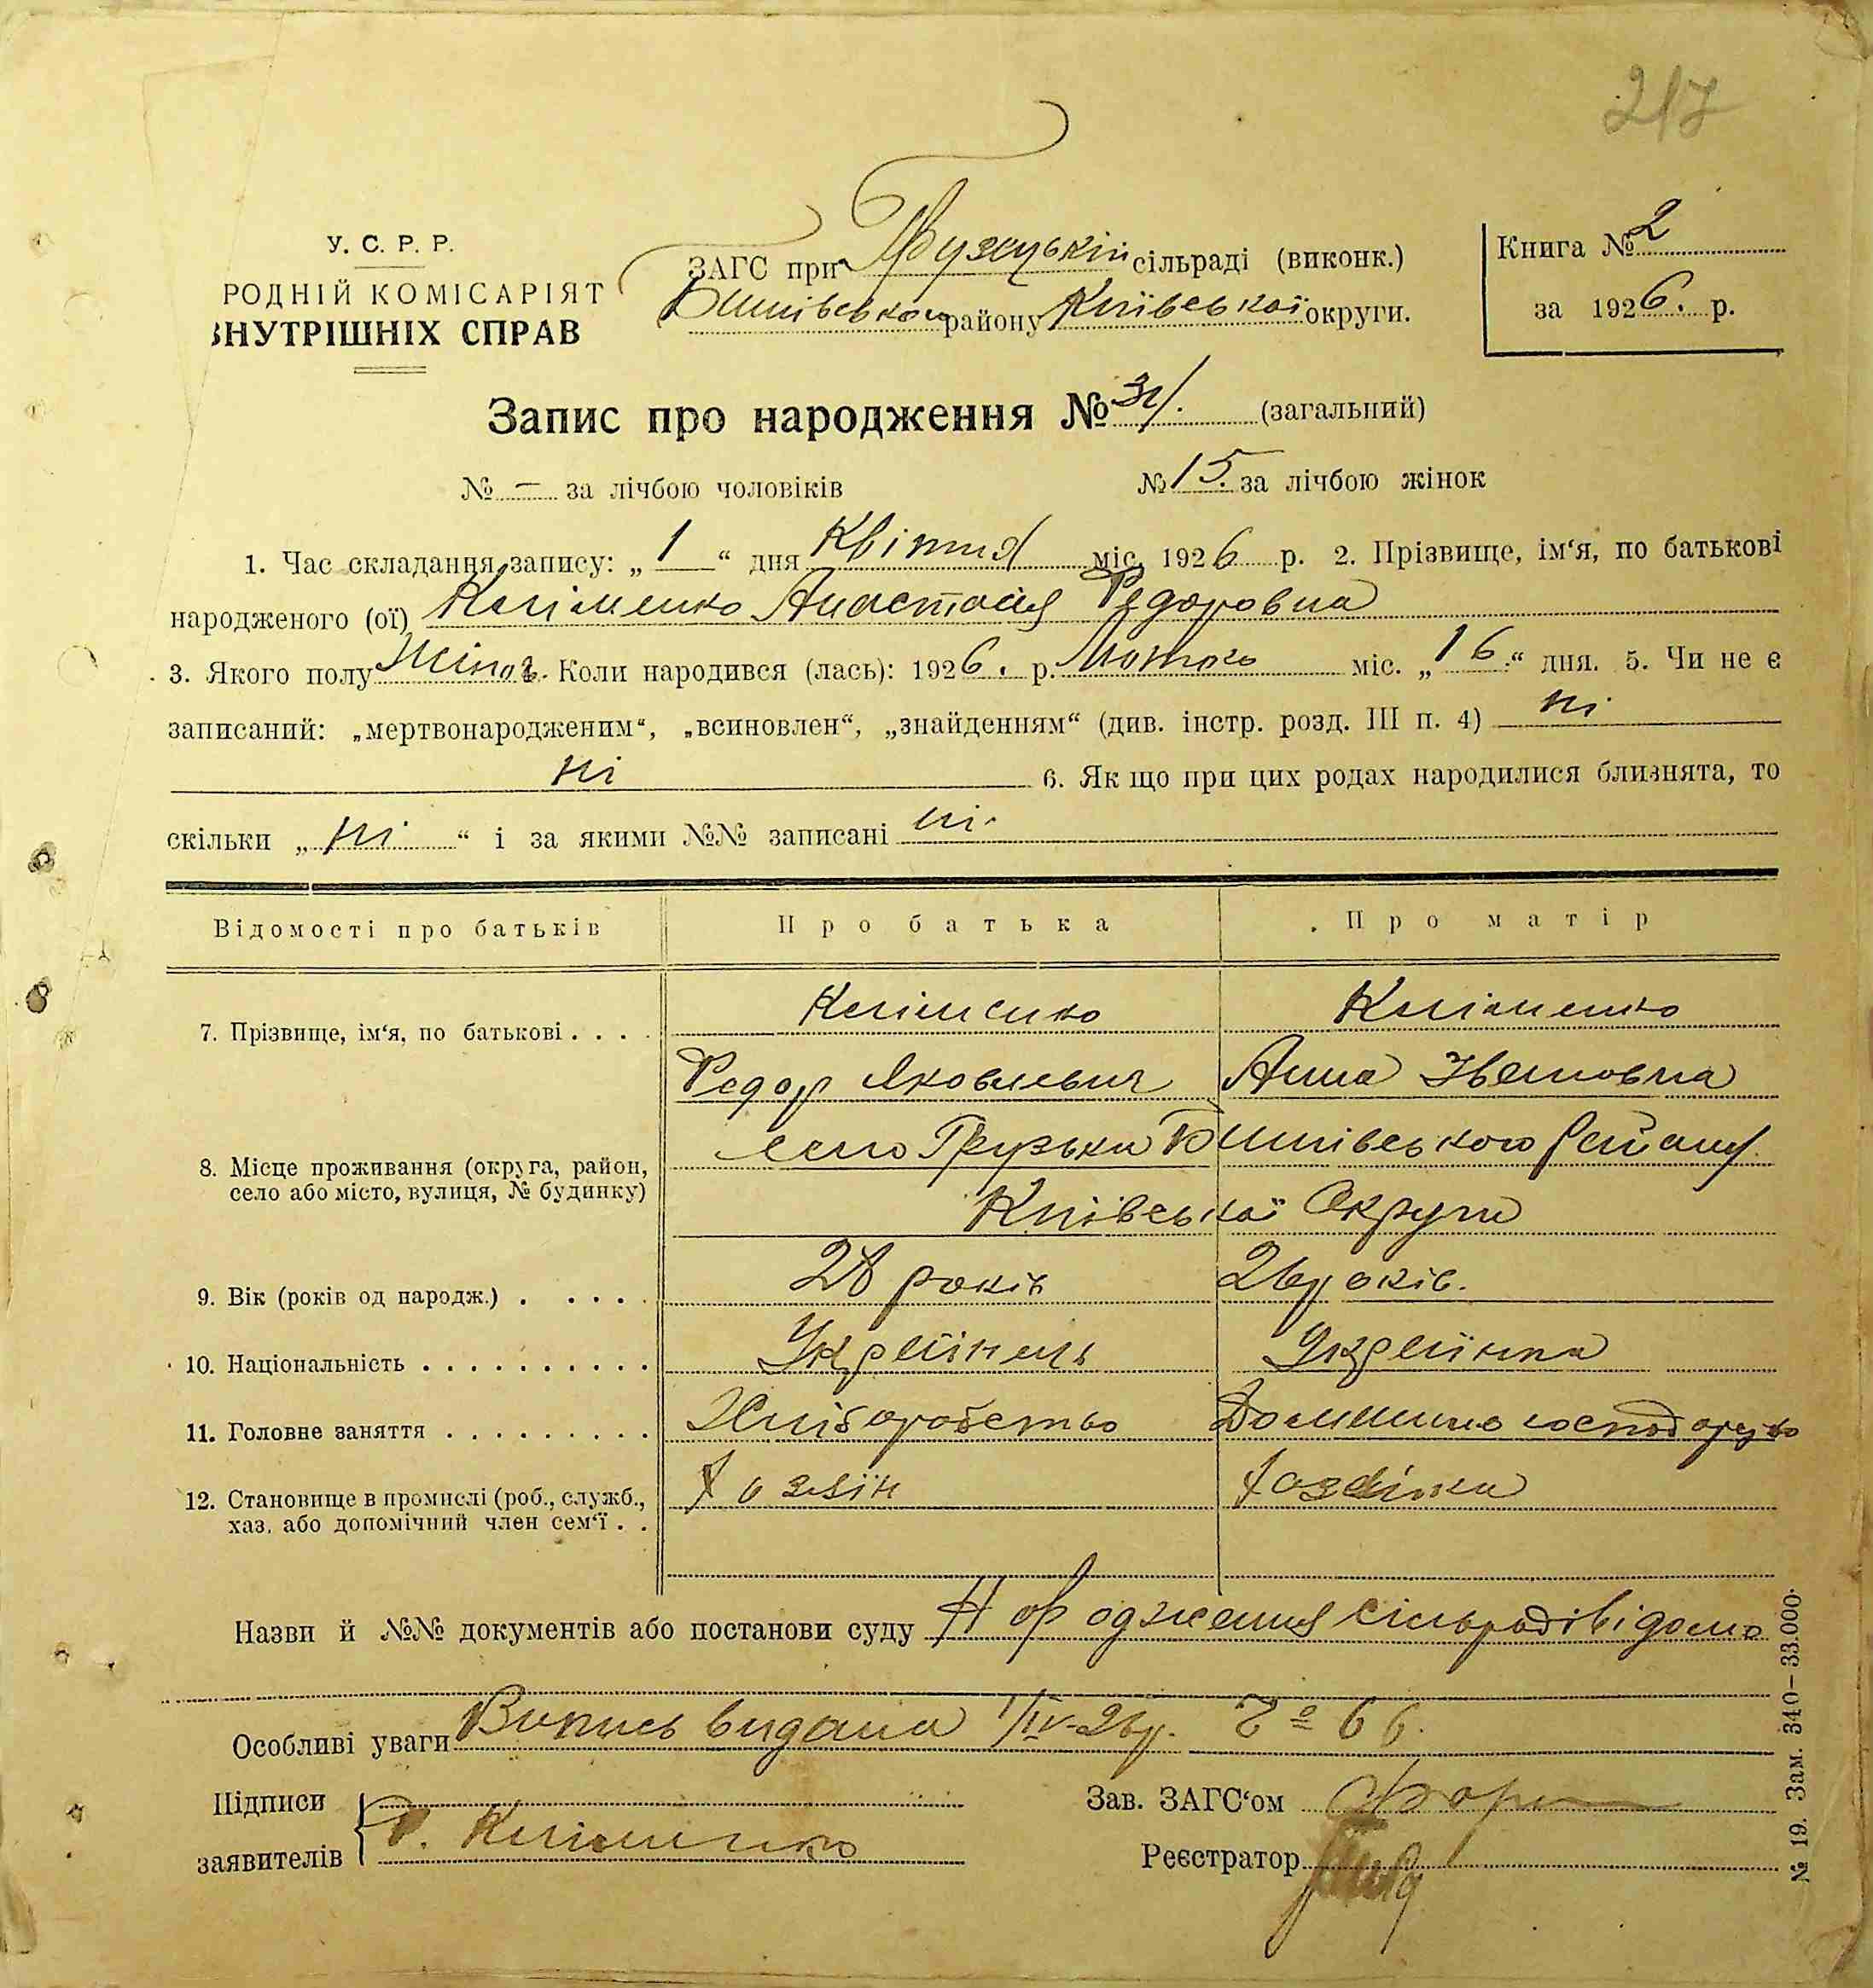 217
У. С. Р. Р.
РОДНІЙ КОМІСАРІЯТ
ВНУТРІШНІХ СПРАВ
ЗАГС при Грузський сільраді (виконк.)
Бишівського району Київської округи.
Книга № 2
за 1926. р.
Запис про народження № 31. (загальний)
№ — за лічбою чоловіків № 15. за лічбою жінок
1. Час складання запису: „ 1 “ дня Квітня міс. 1926 р. 2. Прізвище, ім‘я, по батькові
народженого (ої) Кліменко Анастасія Федоровна
3. Якого полу Жіноч. Коли народився (лась): 1926. р. Лютого міс. „ 16 “ дня. 5. Чи не є
записаний: „мертвонародженим“, „всиновлен“, „знайденням“ (див. інстр. розд. III п. 4) ні
ні 6. Як що при цих родах народилися близнята, то
скільки „ ні “ і за якими №№ записані ні
Відомості про батьків Про батька Про матір
7. Прізвище, ім‘я, по батькові . . . . Кліменко Кліменко
Федор Яковлевич Анна Івановна
8. Місце проживання (округа, район, село Грузьки Бишівського Району
село або місто, вулиця, № будинку) Київської Округи
9. Вік (років од народж.) . . . . . 28 років 26 років.
10. Національність . . . . . . . . . . Українець Українка
11. Головне заняття . . . . . . . . . Хліборобство Домашнє господарство
12. Становище в промислі (роб., служб., Хозяїн Хозяїнка
хаз. або допомічний член сем‘ї . .
Назви й №№ документів або постанови суду Народження сільраді відомо
Особливі уваги Випись видана 1/IV-26р. за № 66.
Підписи
заявителів Ф. Кліменко
Зав. ЗАГС‘ом
Реєстратор
№ 19. Зам. 340–33.000.